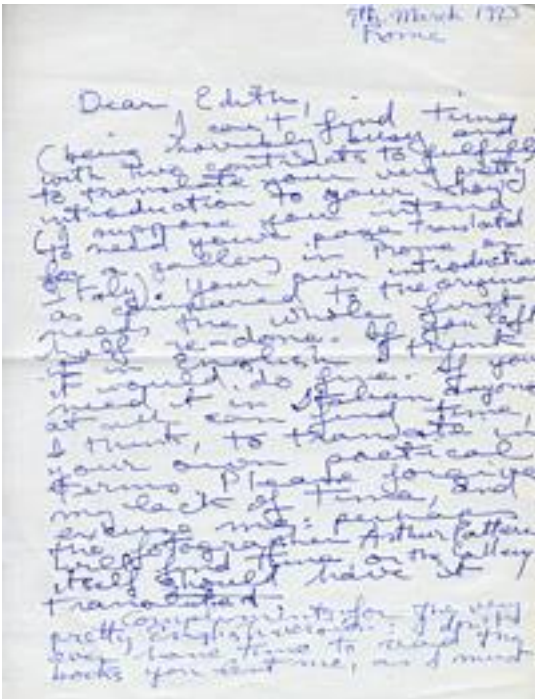 9th March 1993
Rome
Dear Edith,
I can't find time
(being horribly busy and
with two contracts to fulfill)
to translate your very pretty
introduction to your show
(I suppose you intend
to need your page translated
for a gallery in Rome or
Italy). Your own introduction
as compared to the original
needs the whole first
half re-done. If you left
it in English I think
it would do fine. If you
need it in Italian anyone
at all can find time,
I think, to translate in
your own poetical
terms. Please forgive
my lack of time, and
excuse me: perhaps
the fotographer Arthur
will find time or the Gallery
itself should have it
translated
for the very
pretty English version. I doubt
ever have time to read the
books you sent me, as I must